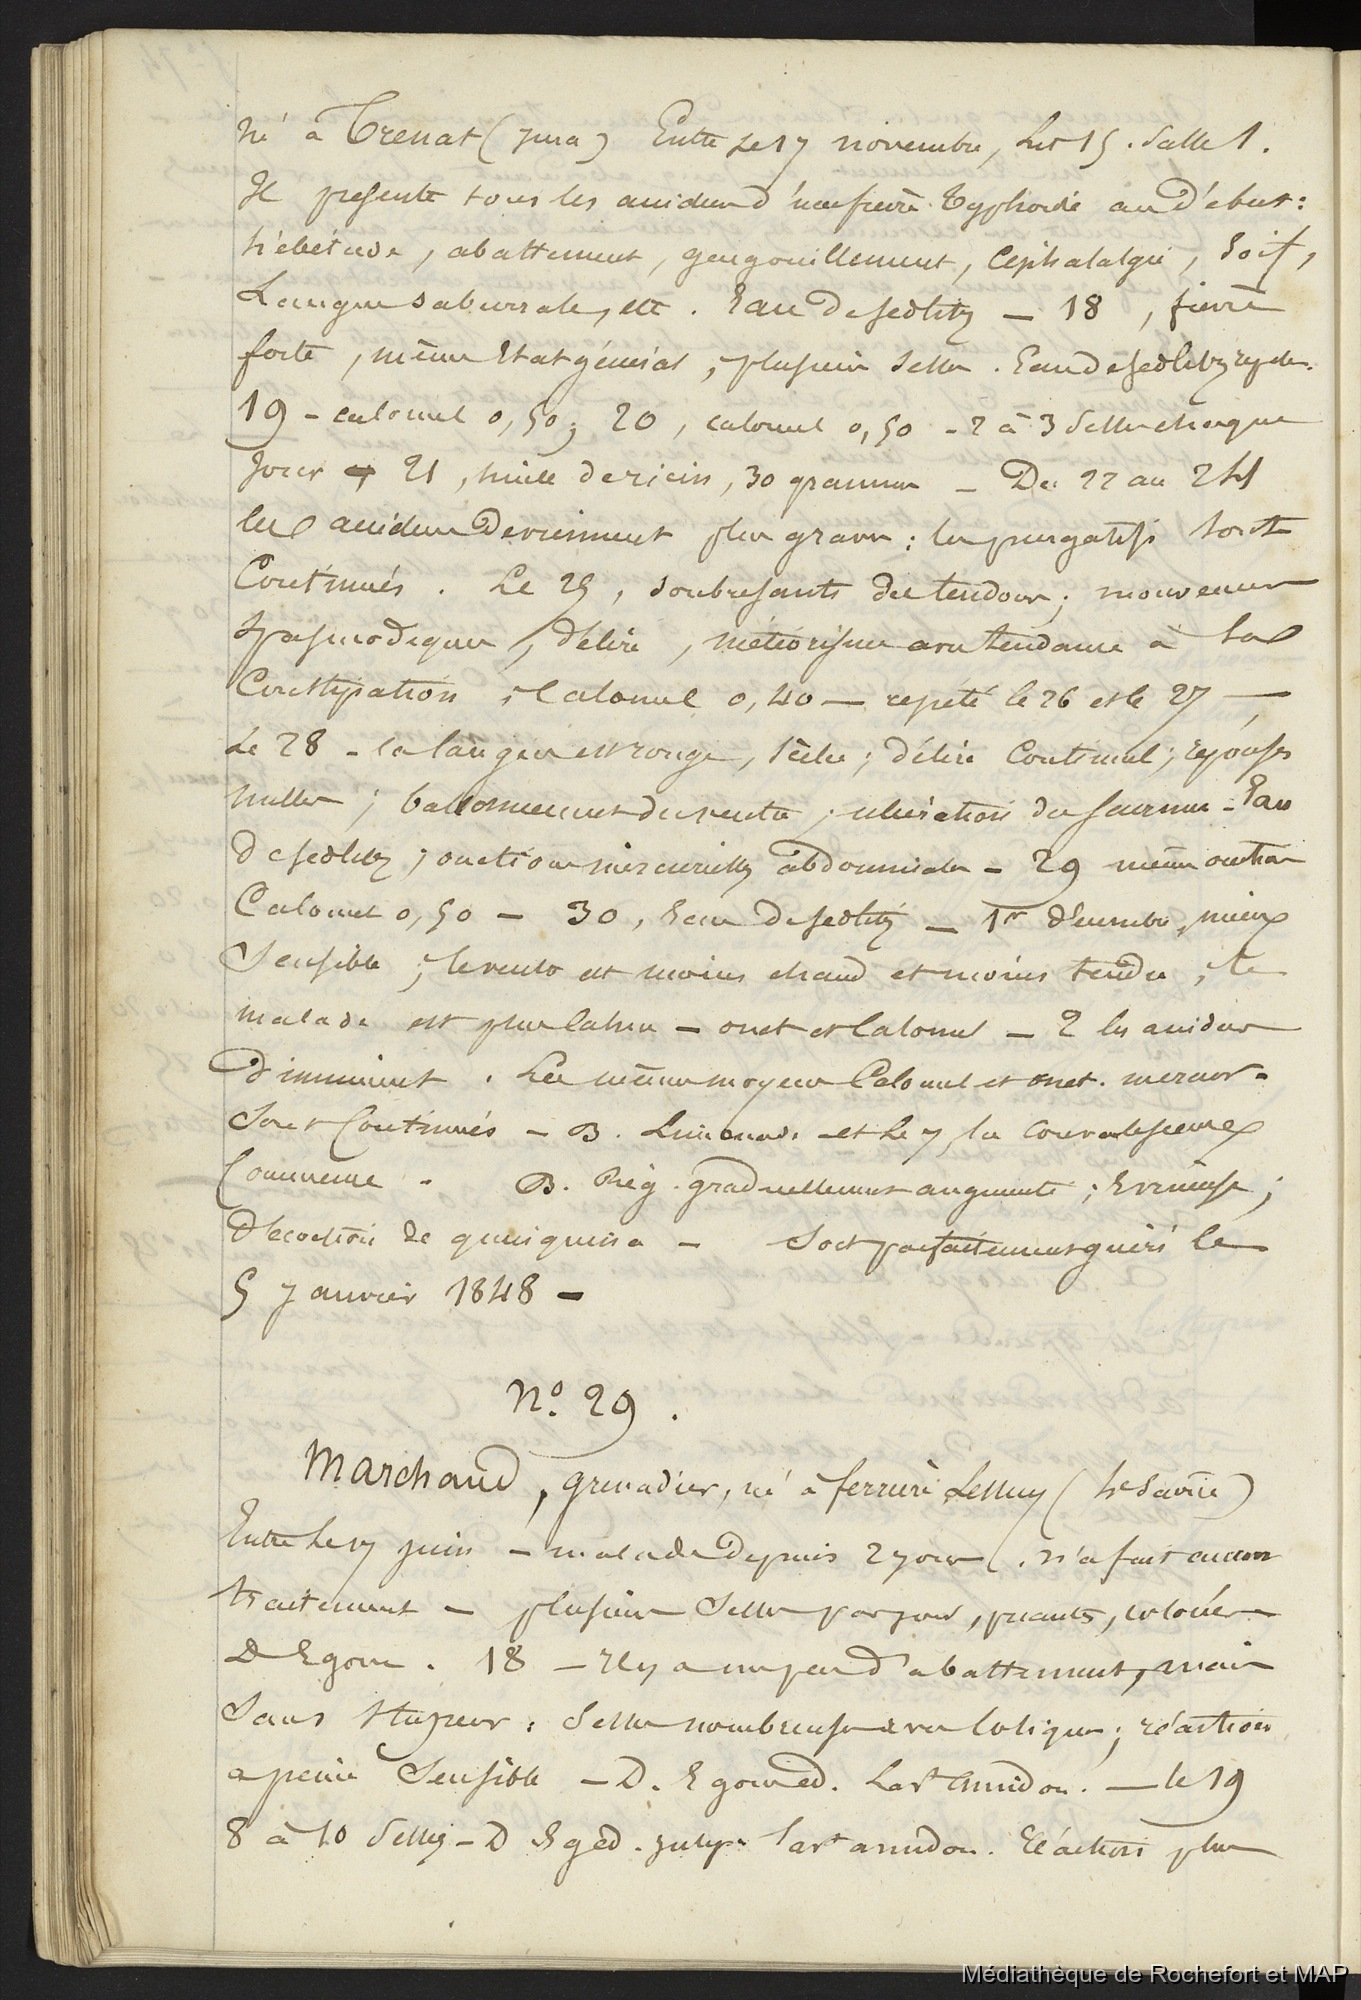 né à Trenat (jura) Entre le 17 novembre, Lit 15. Salle 1.
Il presente tous les accidens d'une fievre Typhoïde au début:
hébétude, abattement, gargouillement, Céphalalgie, Soif,
Langue saburrale, etc. Eau de sedlitz — 18, fievre
forte, même Etat général, plusieurs selles. Eau de sedlitz
19 - calomel 0,50; 20, calomel 0,50 - 2 à 3 Selles chaque
jour 21, huile de ricin, 30 grammes — Du 22 au 24
les accidens Deviennent plus graves: les purgatifs sont
Continués. Le 25, soubresauts des tendons; mouvemens
Spasmodiques, délire, météorisme avec tendance à la
Constipation, Calomel 0,40 — répété le 26 et le 27 —
Le 28 - la langue est rouge, sèche; délire Continuel; réponses
nulles; ballonnement du ventre; ulcération du sacrum - Eau
de sedlitz; onctions mercurielles abdominales - 29 même onction
Calomel 0,50 — 30, Eau de sedlitz — 1er décembre, mieux
Sensible; le ventre est moins chaud et moins tendu; le
malade est plus calme — onct et Calomel — 2 les accidens
diminuent. Les mêmes moyens Calomel et onct. mercur.
Sont Continués — B. Limonade - et le 7 la convalescence
Commence. B. Rég. graduellement augmenté;
décoction de quinquina — Sort parfaitement guéri le
5 janvier 1848 —
No. 29.
Marchand, grenadier, né à ferriere (hte Savoie)
Entre le 17 juin — malade depuis 2 jours. N'a fait aucun
traitement — plusieurs Selles par jour,
D Egom. 18 — Il y a un peu d'abattement, mais
Sans stupeur; Selles nombreuses avec Coliques; réaction
a peine Sensible — D. Egomed. Lavt amidon. — le 19
8 à 10 Selles - D Eged. julep Lavt amidon. Réaction plus
Médiathèque de Rochefort et MAP